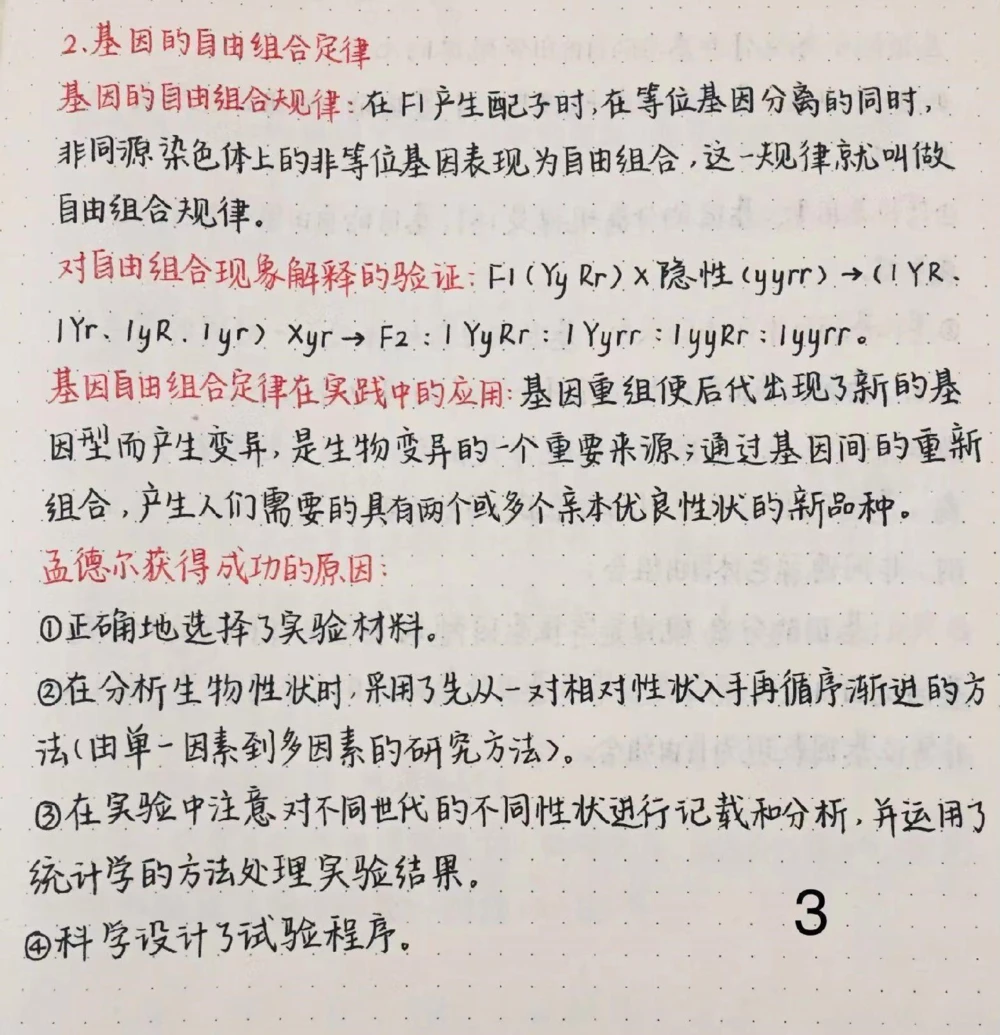 2.基因的自由组合定律
基因的自由组合规律:在F1产生配子时,在等位基因分离的同时,
非同源染色体上的非等位基因表现为自由组合,这一规律就叫做
自由组合规律。
对自由组合现象解释的验证:F1(YyRr)X隐性(yyrr)→(1YR、
1Yr、1yR.1yr)Xyr→F2:1YyRr:1Yyrr:1yyRr:1yyrr。
基因自由组合定律在实践中的应用:基因重组使后代出现了新的基
因型而产生变异,是生物变异的一个重要来源;通过基因间的重新
组合,产生人们需要的具有两个或多个亲本优良性状的新品种。
孟德尔获得成功的原因:
①正确地选择了实验材料。
②在分析生物性状时,采用了先从一对相对性状入手再循序渐进的方
法(由单一因素到多因素的研究方法)。
③在实验中注意对不同世代的不同性状进行记载和分析,并运用了
统计学的方法处理实验结果。
④科学设计了试验程序。
3